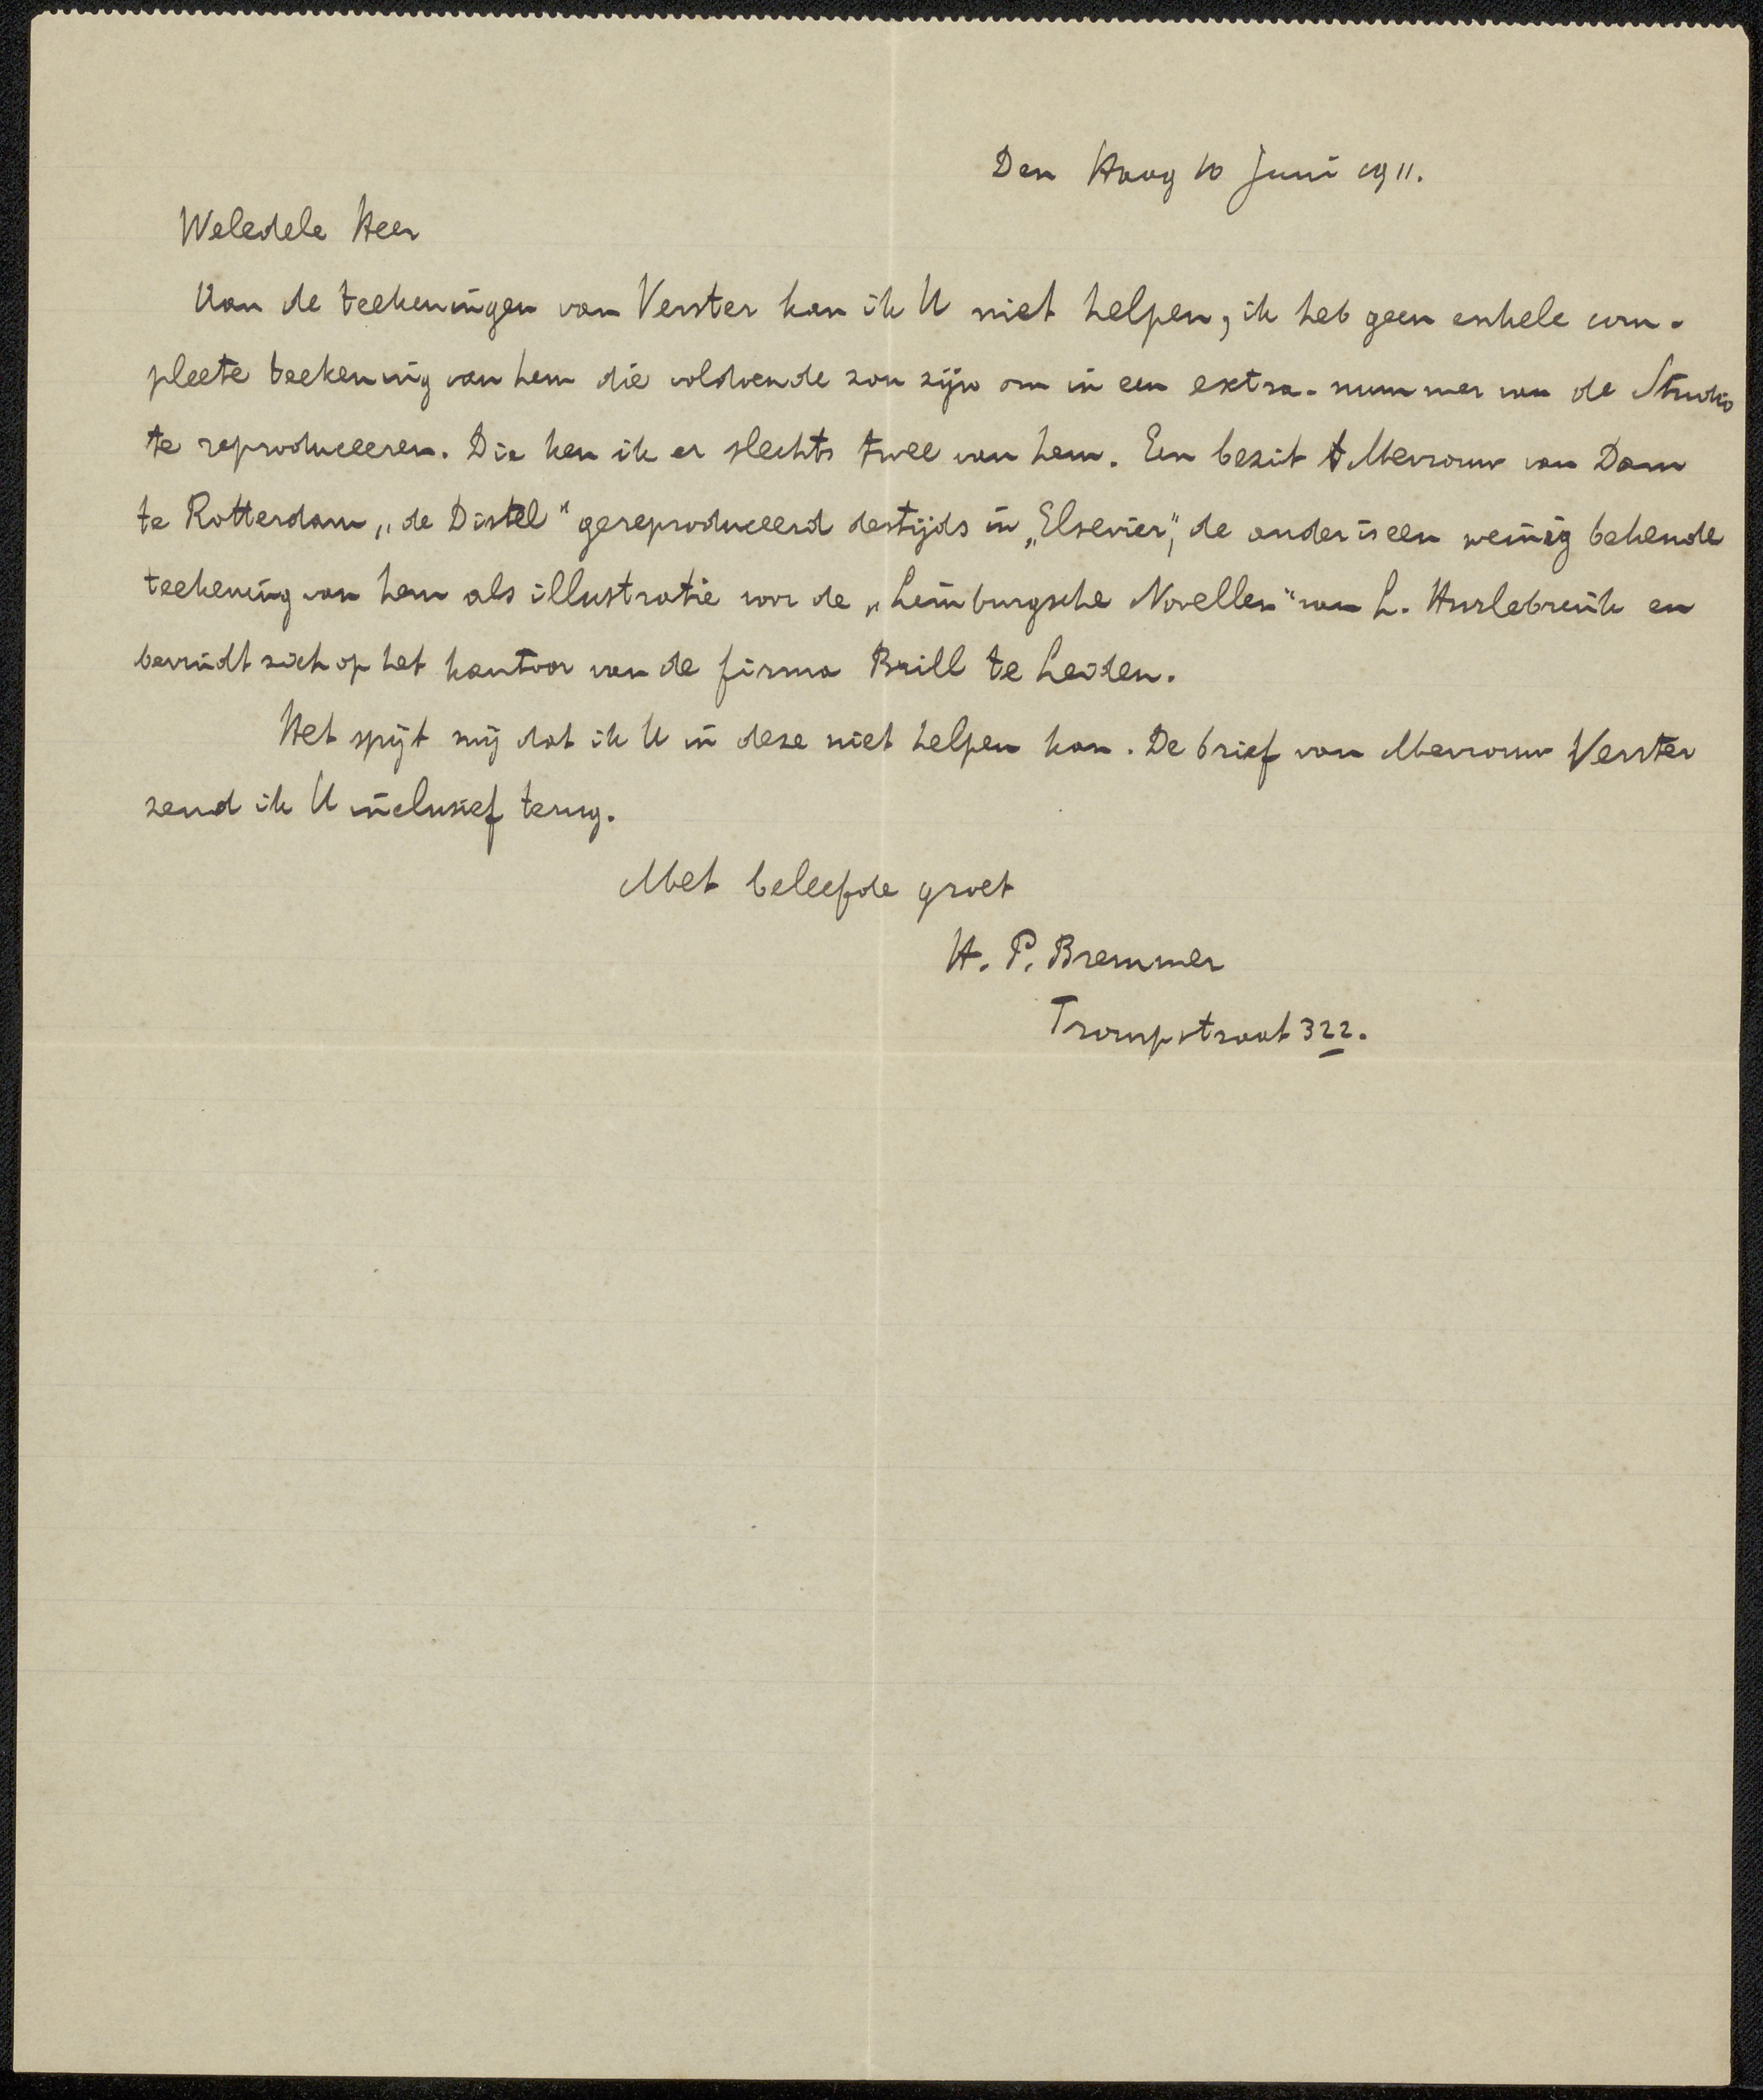 Den Haag 10 Juni 1911.
Weledele Heer
Van de teekeningen van Verster kan ik U niet helpen, ik heb geen enkele com-
pleete teekening van hem die voldoende zou zijn om in een extra-nummer van de Studio
te reproduceeren. Die ken ik er slechts twee van hem. Een bezit Mevrouw van Dam
te Rotterdam „de Distel“ gereproduceerd destijds in „Elsevier“, de ander is een weinig bekende
teekening van hem als illustratie voor de „Limburgsche Novellen“ van L. en
bevindt zich op het kantoor van de firma Brill te Leiden.
Het spijt mij dat ik U in deze niet helpen kan. De brief van Mevrouw Verster
zend ik U inclusief terug.
Met beleefde groet
H. P. Bremmer
Trompstraat 322.